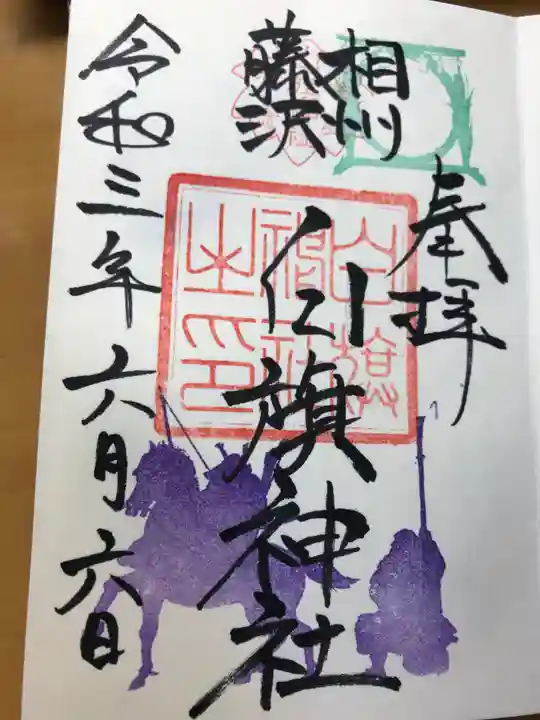 奉拝
相州
藤沢
白旗神社
白旗
神社
之印
令和三年六月六日